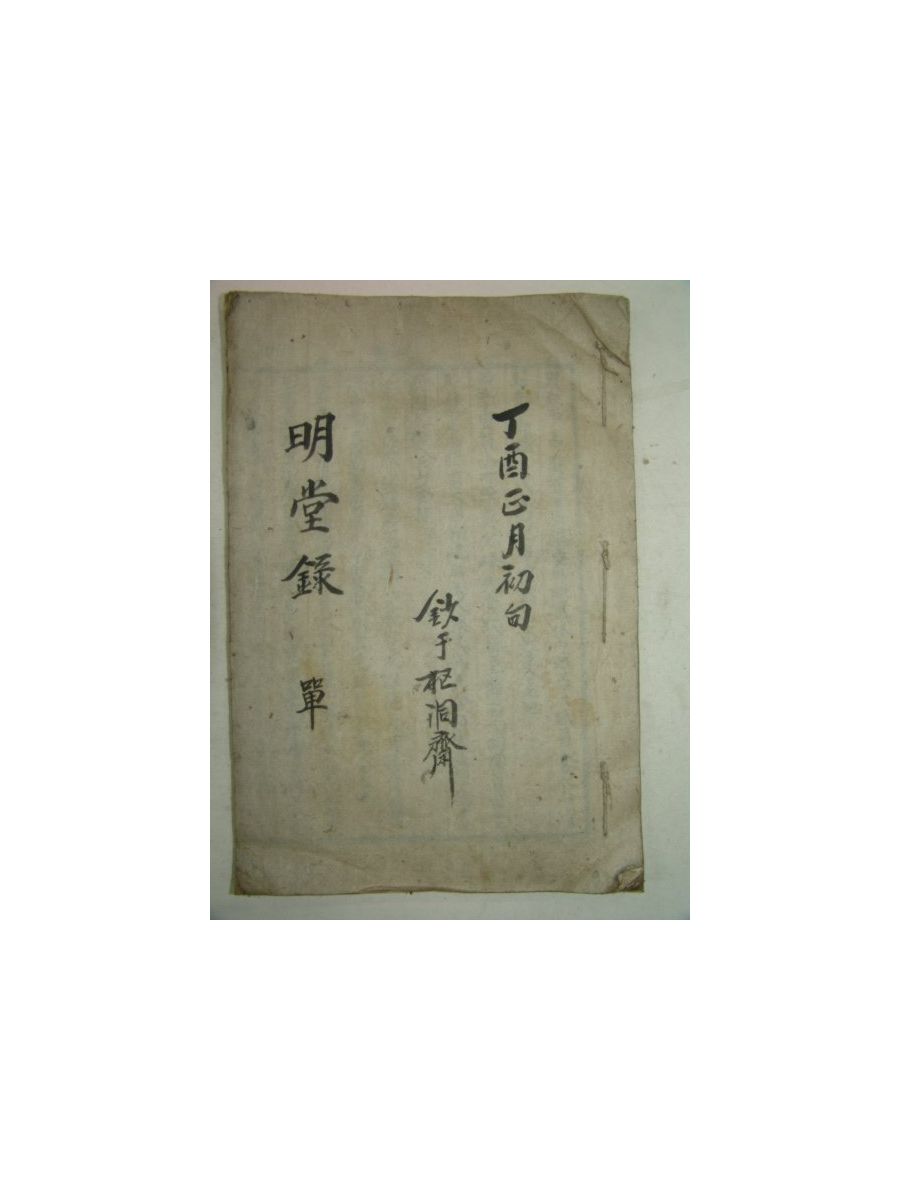 丁酉正月初旬
鈔于杞洞齋
明堂錄 單